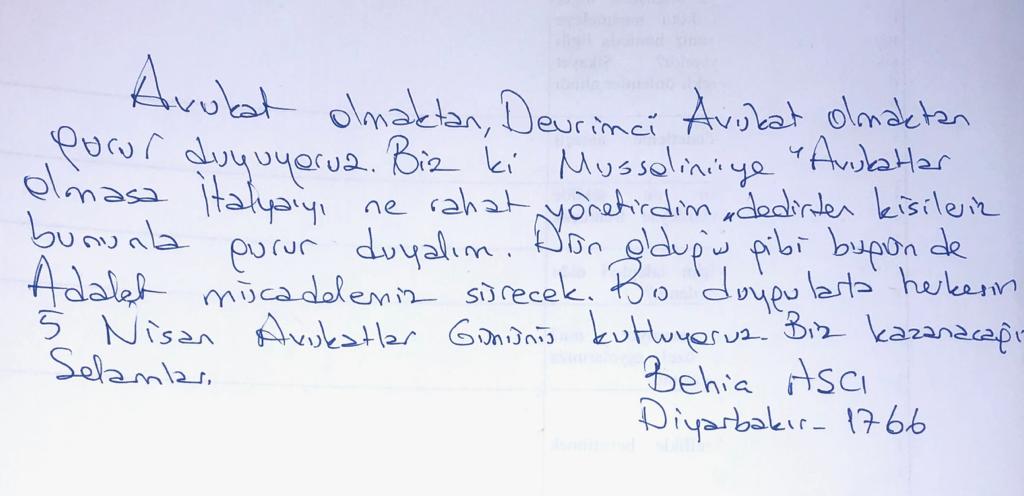 Avukat olmaktan, Devrimci Avukat olmaktan
gurur duyuyoruz. Biz ki Mussolini'ye "Avukatlar
olmasa İtalya'yı ne rahat yönetirdim" dedirten kişileriz
bununla gurur duyalım. Dün olduğu gibi bugün de
Adalet mücadelemiz sürecek. Bu duygularla herkesin
5 Nisan Avukatlar Gününü kutluyoruz. Biz
Selamlar.
Behia AŞCI
Diyarbakır - 1766